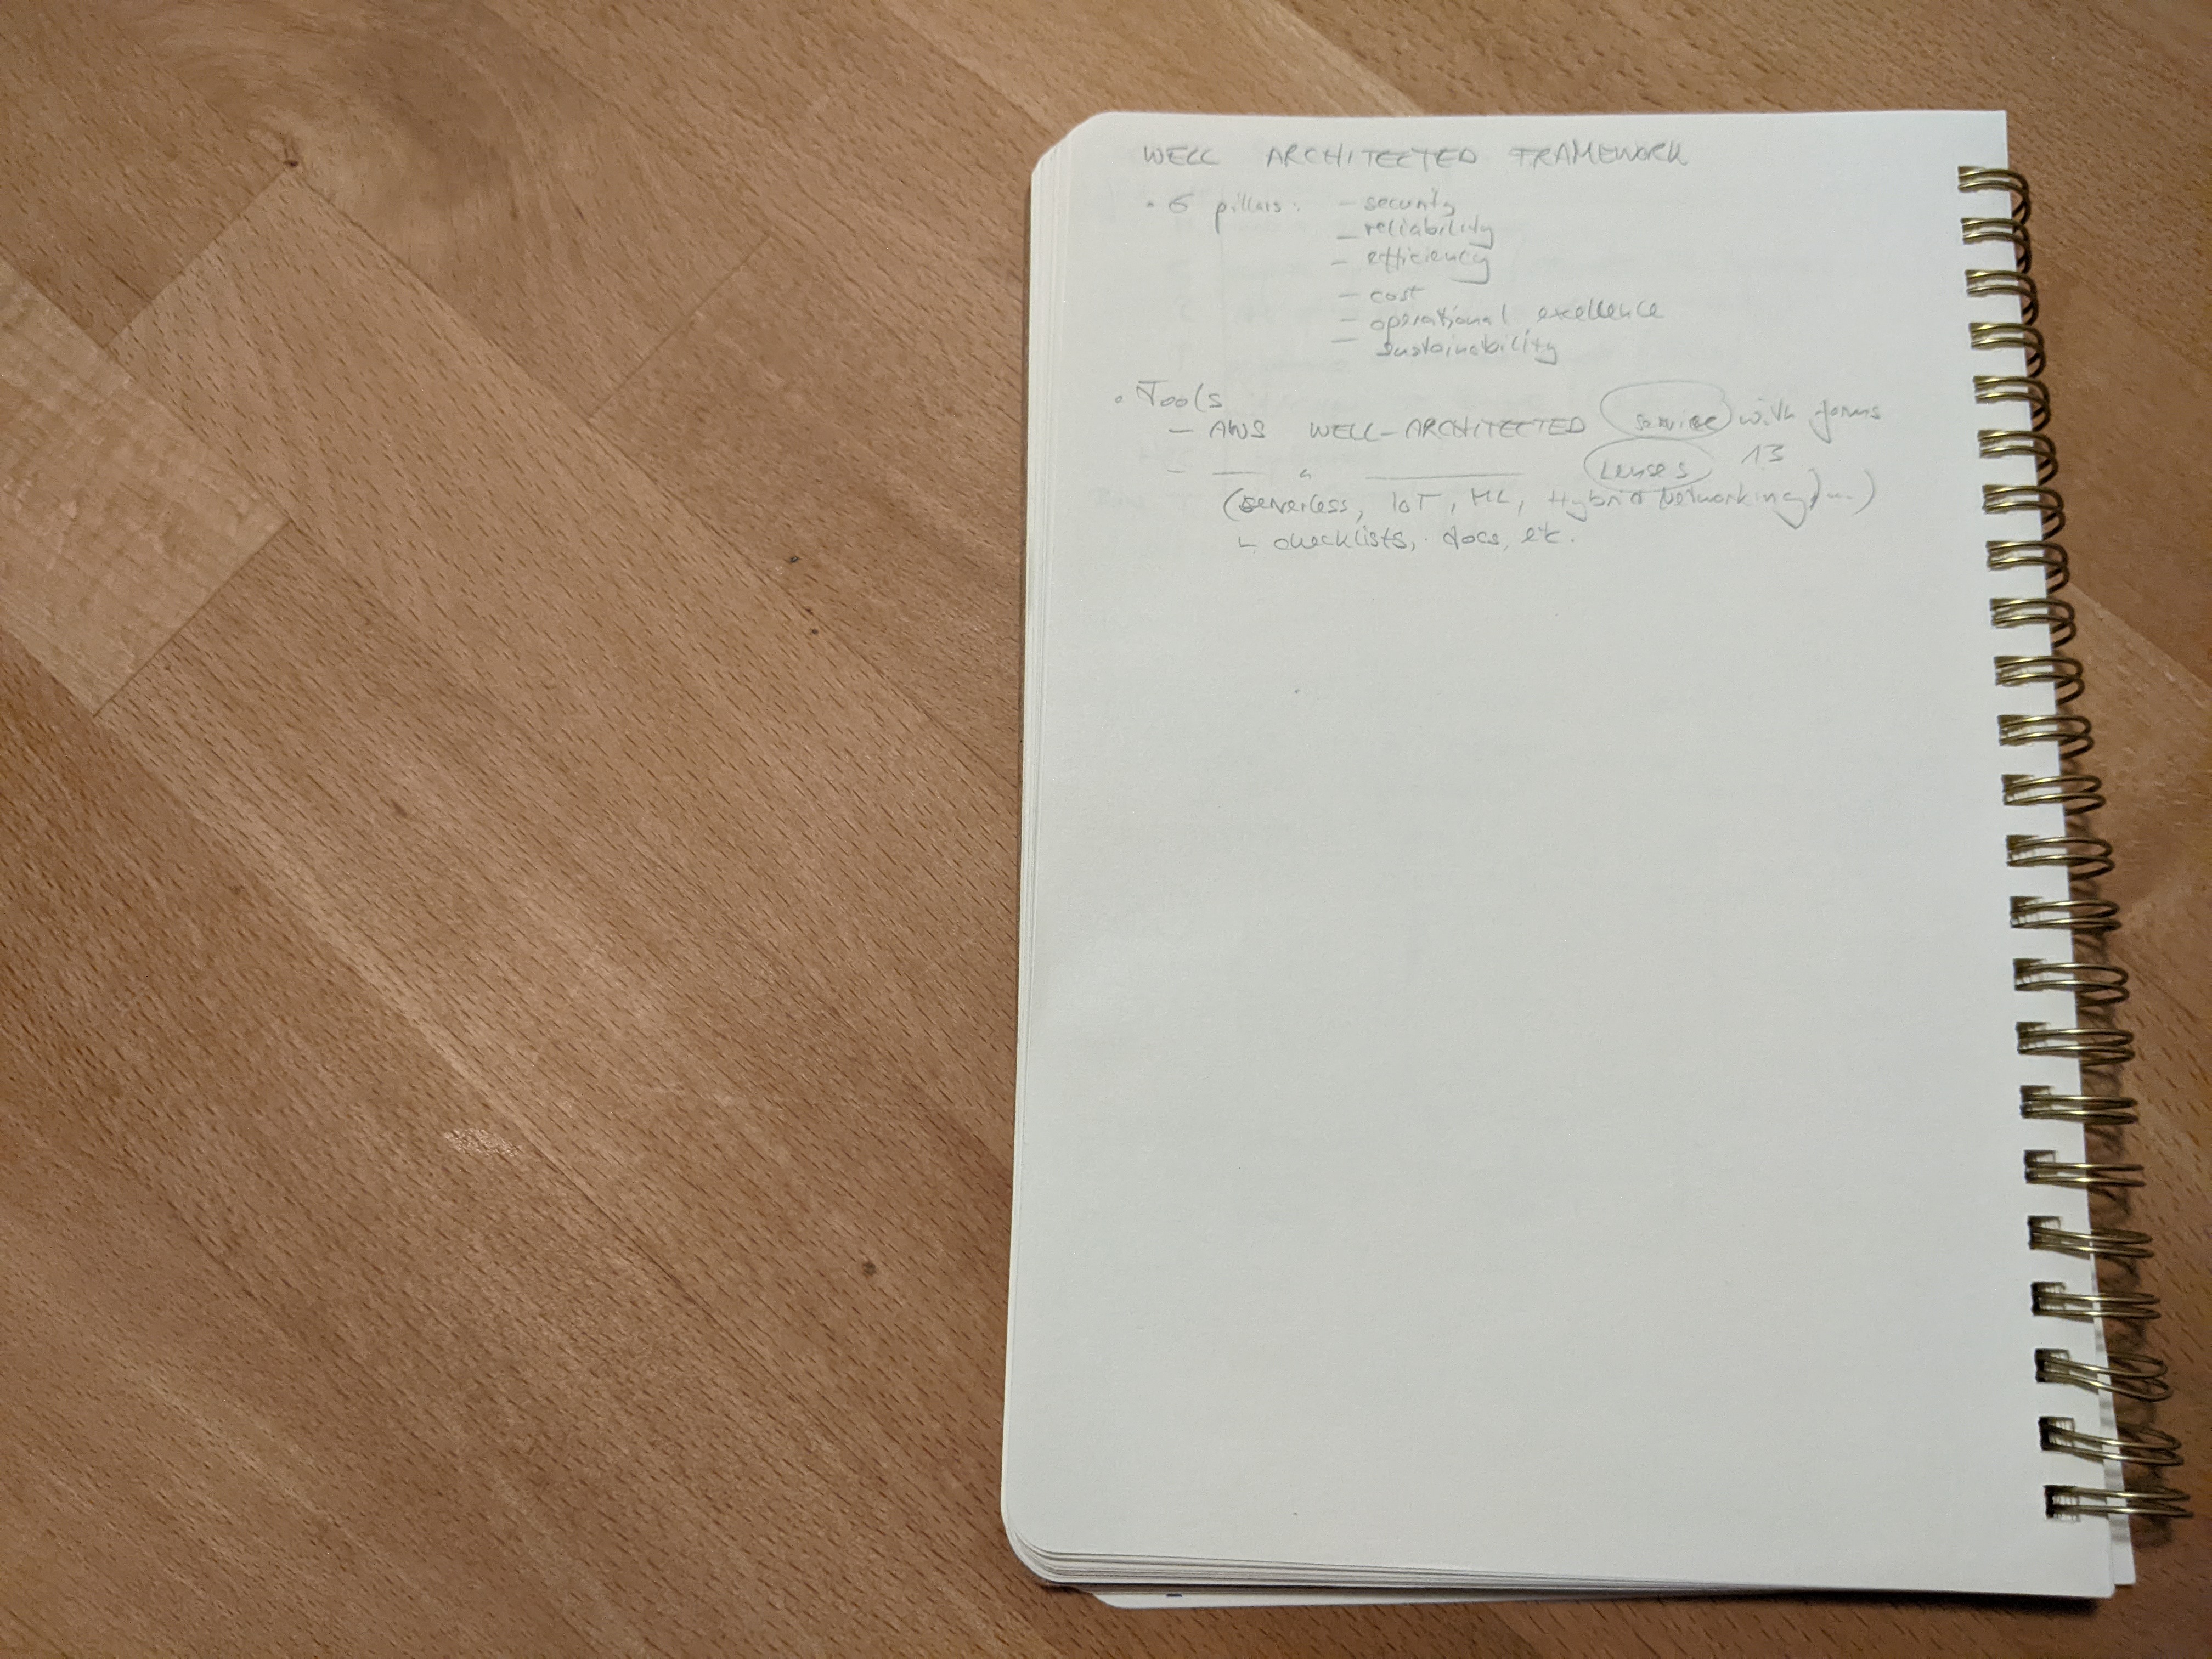 WELL ARCHITECTED FRAMEWORK
• 6 pillars: - security
- reliability
- efficiency
- cost
- operational excellence
- sustainability
• Tools
- AWS WELL-ARCHITECTED service with forms
- — " — lenses 13
(serverless, IoT, ML, Hybrid Networking, ...)
↳ checklists, docs, etc.